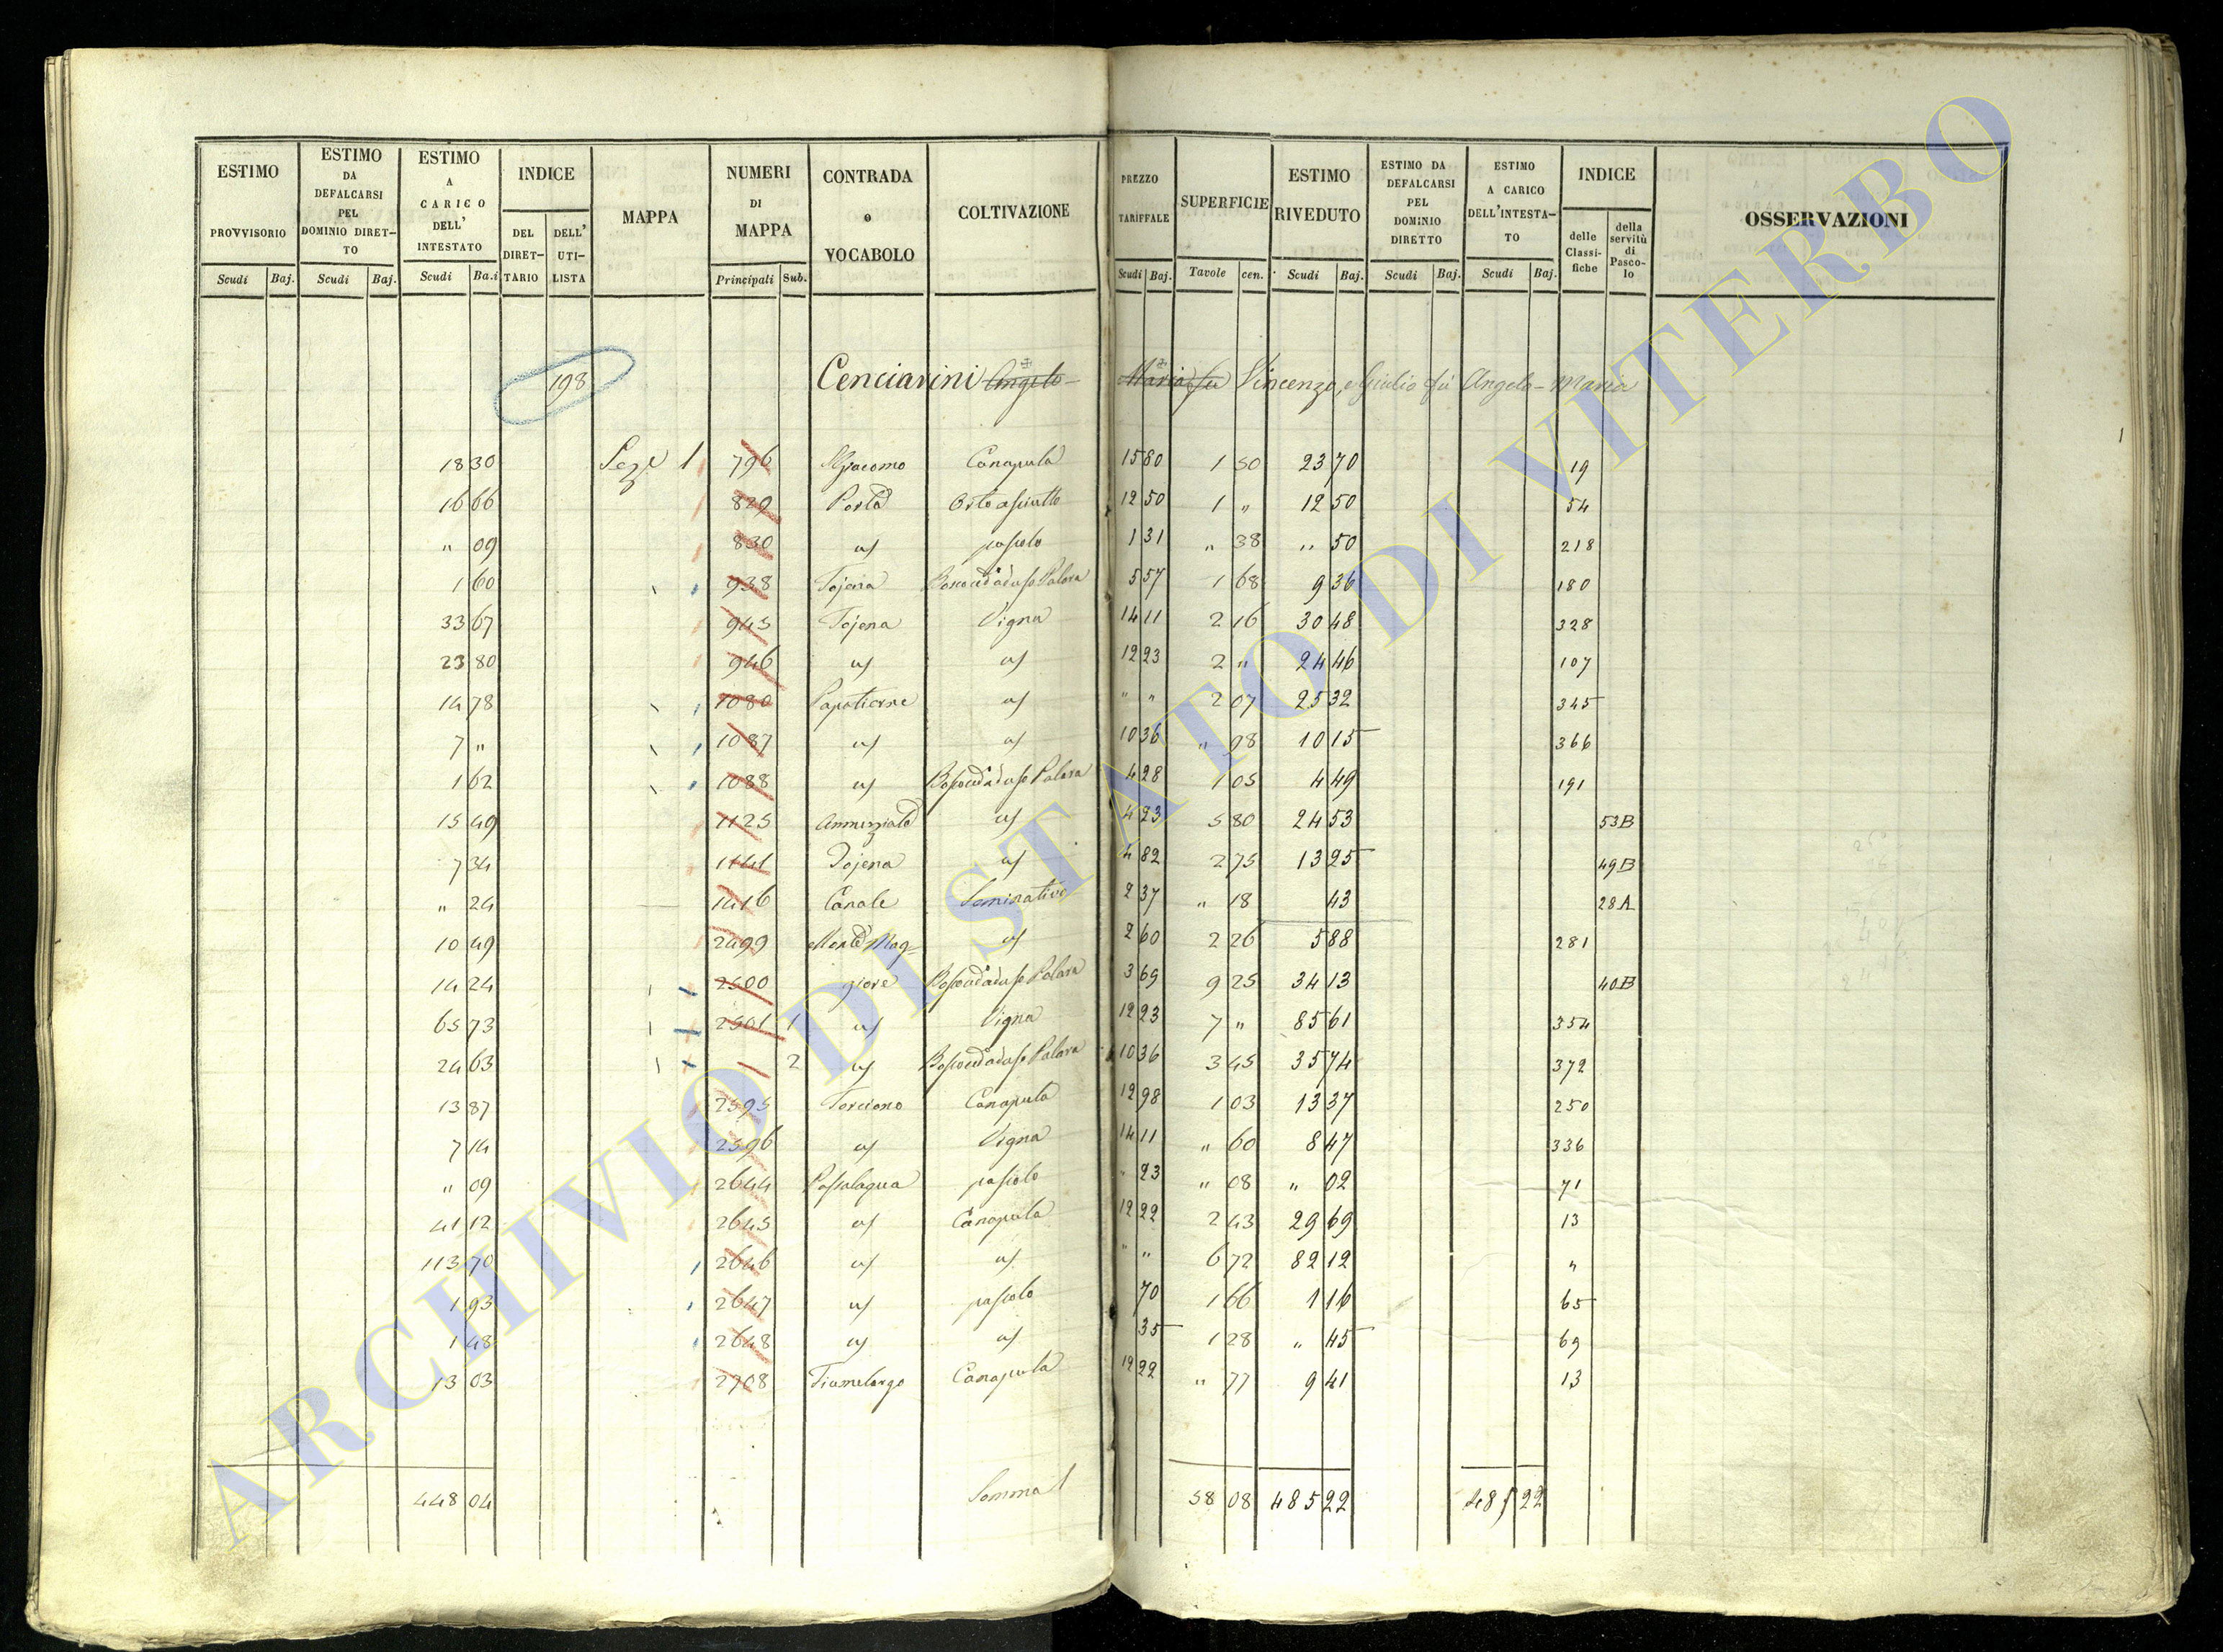 ESTIMO PROVVISORIO Scudi Baj.
ESTIMO DA DEFALCARSI PEL DOMINIO DIRETTO Scudi Baj.
ESTIMO A CARICO DELL' INTESTATO Scudi Ba.i
INDICE DEL DIRETTARIO DELL' UTILISTA
MAPPA
NUMERI DI MAPPA Principali Sub.
CONTRADA o VOCABOLO
COLTIVAZIONE
PREZZO TARIFFALE Scudi Baj.
SUPERFICIE Tavole cen.
ESTIMO RIVEDUTO Scudi Baj.
ESTIMO DA DEFALCARSI PEL DOMINIO DIRETTO Scudi Baj.
ESTIMO A CARICO DELL'INTESTATO Scudi Baj.
INDICE delle Classifiche della servitù di Pascolo
OSSERVAZIONI
198 Cenciarini Angelo Maria fu Vincenzo, e Giulio fù Angelo-Maria
18 30 Sez.e 1 796 S Giacomo Canapula 15 80 1 50 23 70 19
16 66 829 Porta Orto asciutto 12 50 1 " 12 50 54
" 09 830 pascolo 1 31 " 38 " 50 218
1 60 938 Tojena Palara 5 57 1 68 9 36 180
33 67 945 Tojena Vigna 14 11 2 16 30 48 328
23 80 946 12 23 2 " 24 46 107
14 78 1080 " " 2 07 25 32 345
7 " 1087 10 36 " 98 10 15 366
1 62 1088 Palara 4 28 1 05 4 49 191
15 49 1125 Annunziata 4 23 5 80 24 53 53B
7 34 1141 Tojena 4 82 2 75 13 25 49B
" 24 1416 Canale Seminativo 2 37 " 18 43 28A
10 49 2499 Monte Mag= 2 60 2 26 5 88 281
14 24 2500 giore Palara 3 69 9 25 34 13 40B
65 73 2501 1 Vigna 12 23 7 " 85 61 354
24 63 2 Palara 10 36 3 45 35 74 372
13 87 2595 Torciono Canapula 12 98 1 03 13 37 250
7 14 2596 Vigna 14 11 " 60 8 47 336
" 09 2644 Passalaqua pascolo " 23 " 08 " 02 71
41 12 2645 Canapula 12 22 2 43 29 69 13
113 70 2646 " " 6 72 82 12 "
1 93 2647 pascolo 70 1 66 1 16 65
1 48 2648 35 1 28 " 45 69
13 03 2708 Fiumelargo Canapula 12 22 " 77 9 41 13
448 04 Somma 58 08 485 22 485 22
ARCHIVIO DI STATO DI VITERBO